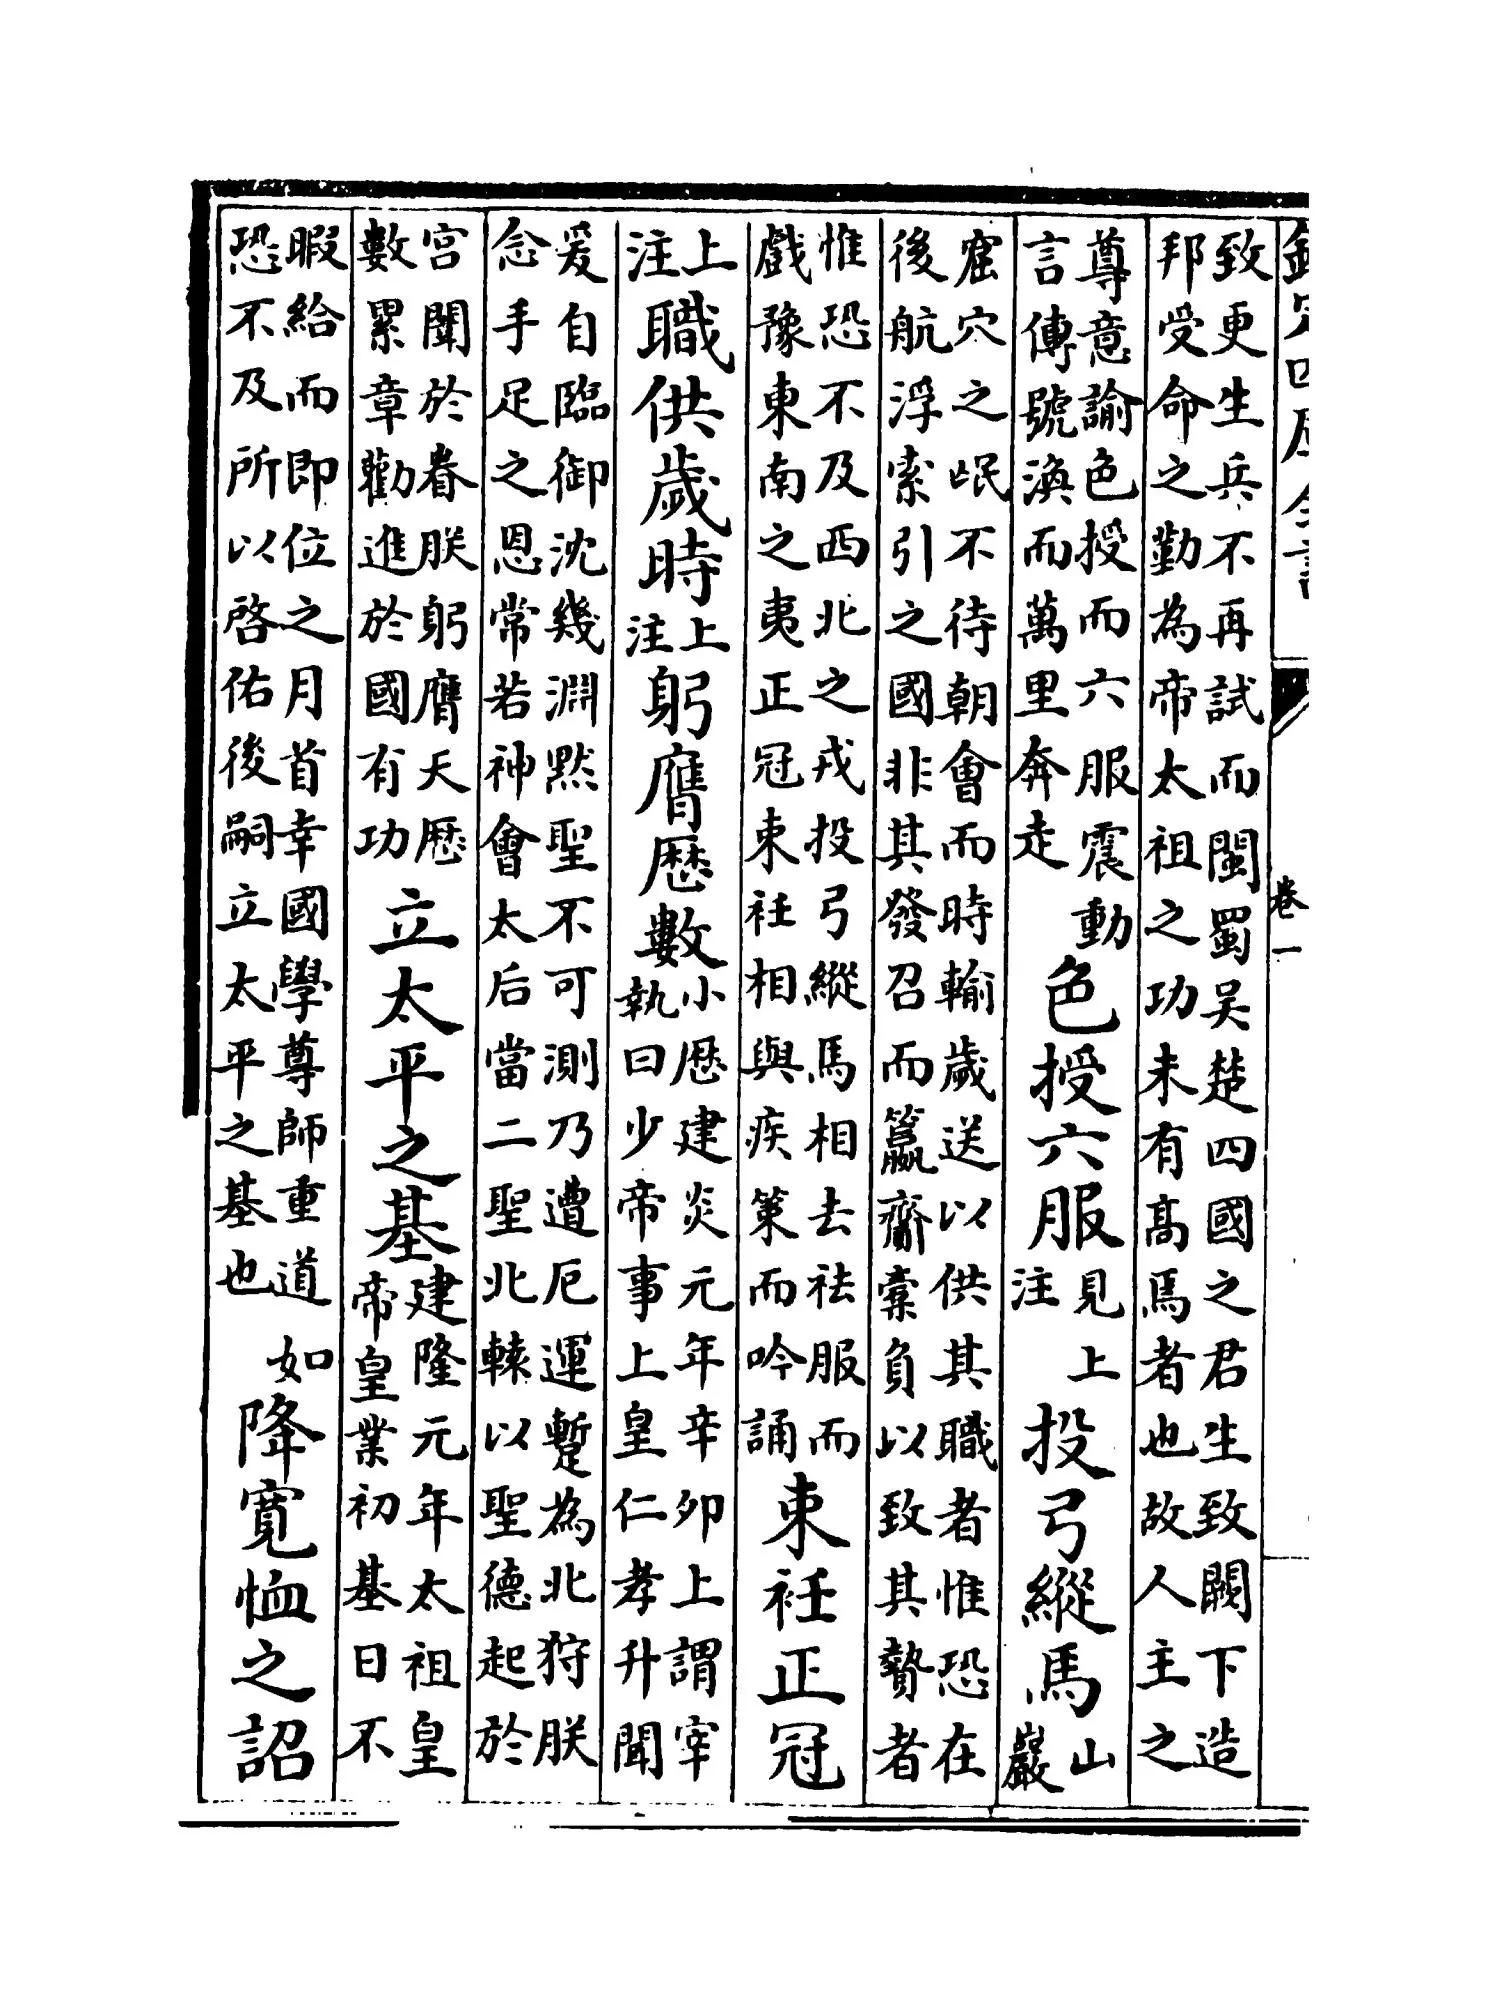 欽定四庫全書
卷一
致更生兵不再試而閩蜀吳楚四國之君生致闕下造
邦受命之勤為帝太祖之功未有高焉者也故人主之
尊意諭色授而六服震動
言傳號渙而萬里奔走
色授六服
見上
注
投弓縱馬
山
巖
窟穴之岷不待朝會而時輸歲送以供其職者惟恐在
後航浮索引之國非其發召而籯齎橐負以致其贄者
惟恐不及西北之戎投弓縱馬相去袪服而
戲豫東南之夷正冠束衽相與疾策而吟誦
束衽正冠
上
注
職供歲時
上
注
躬膺歷數
小歷建炎元年辛卯上謂宰
執曰少帝事上皇仁孝升聞
爰自臨御沈幾淵黙聖不可測乃遭厄運蹔為北狩朕
念手足之恩常若神會太后當二聖北轅以聖德起於
宮闈於眷朕躬膺天歷
數累章勸進於國有功
立太平之基
建隆元年太祖皇
帝皇業初基日不
暇給而即位之月首幸國學尊師重道如
恐不及所以啓佑後嗣立太平之基也
降寬恤之詔